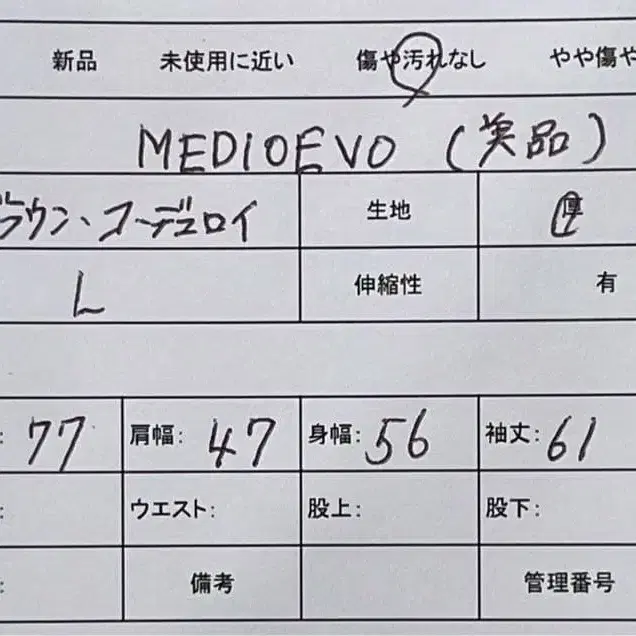 新品 未使用に近い 傷や汚れなし やや傷や
MEDIOEVO (美品)
ブラウン、コーデュロイ 生地 厚
L 伸縮性 有
: 77 肩幅: 47 身幅: 56 袖丈: 61
: ウエスト: 股上: 股下:
: 備考 管理番号